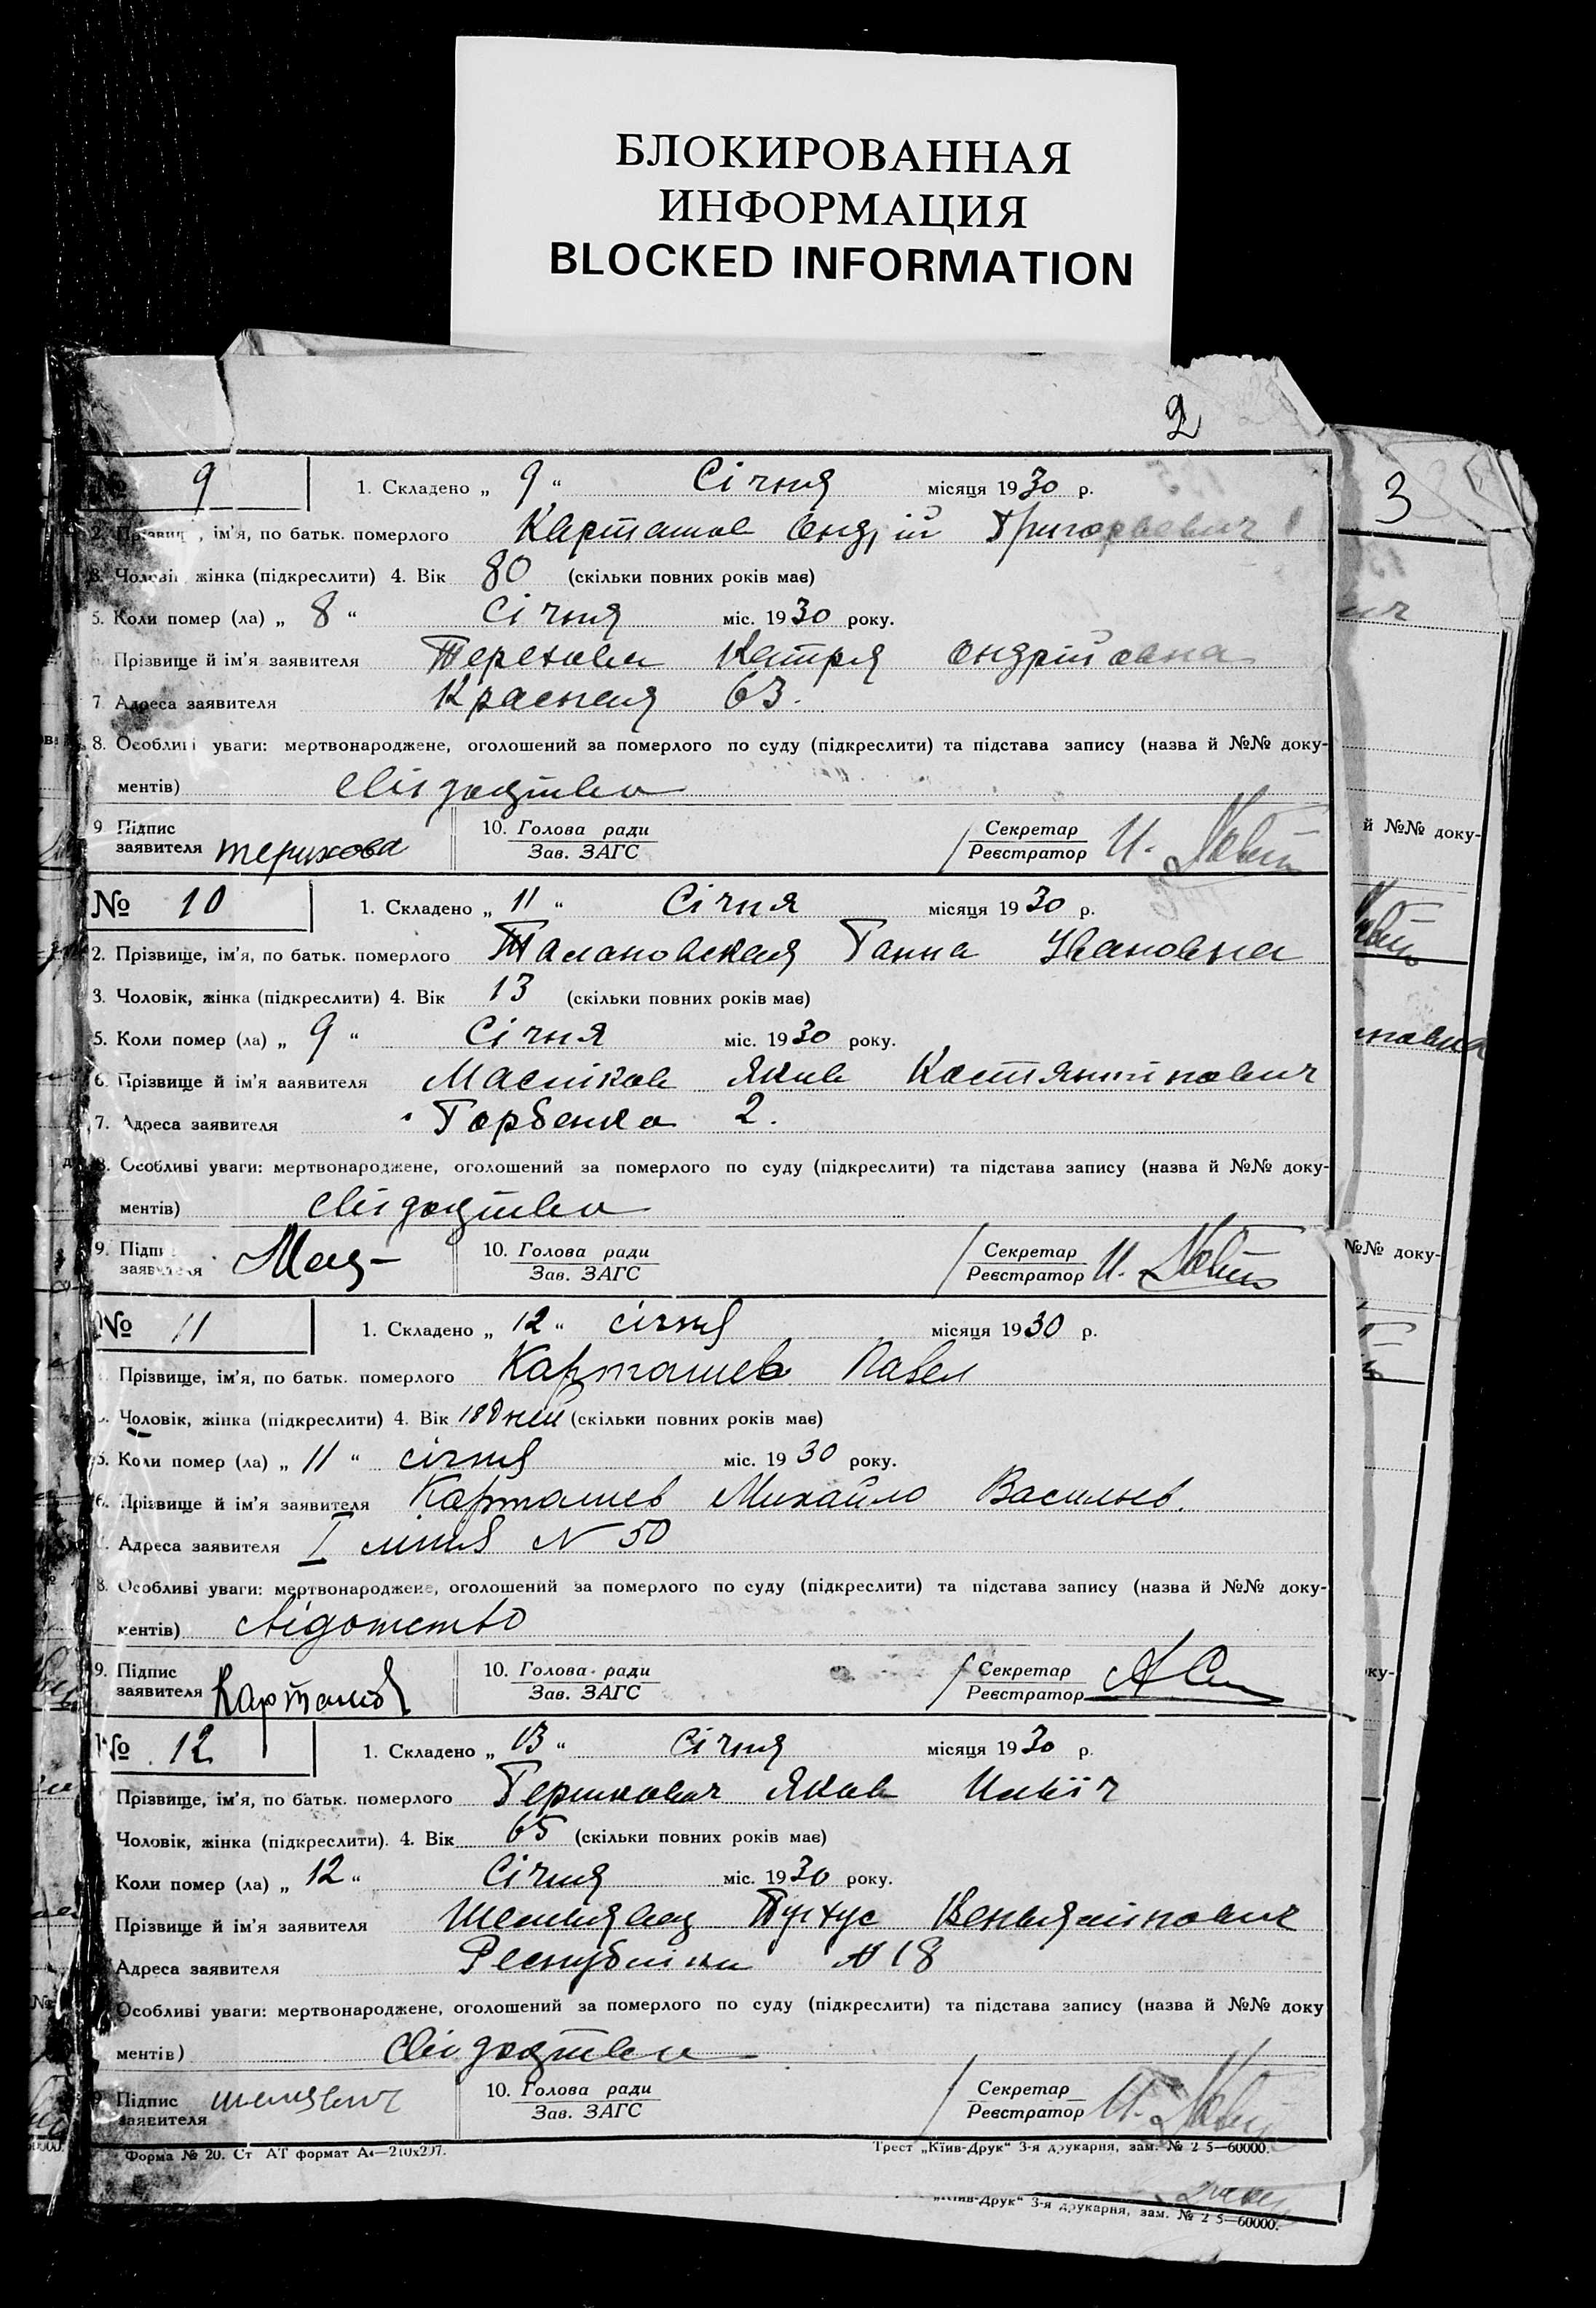 БЛОКИРОВАННАЯ
ИНФОРМАЦИЯ
BLOCKED INFORMATION
2
9 1. Складено „ 9 “ Січня місяця 1930 р.
2. Прізвищ , ім'я, по батьк. померлого Карташов Андрій Григорьевич
3. Чоловік, жінка (підкреслити) 4. Вік 80 (скільки повних років має)
5. Коли помер (ла) „ 8 “ Січня міс. 1930 року.
Прізвище й ім'я заявителя Терехова Катря Ондрійовна
7. Адреса заявителя Красная 63.
8. Особливі уваги: мертвонароджене, оголошений за померлого по суду (підкреслити) та підстава запису (назва й №№ доку-
ментів) свідоцтво
9 Підпис
заявителя терихова
10. Голова ради
Зав. ЗАГС
Секретар
Реєстратор
№ 10 1. Складено „ 11 “ Січня місяця 1930 р.
2. Прізвище, ім'я, по батьк. померлого Талановская Ганна Ивановна
3. Чоловік, жінка (підкреслити) 4. Вік 13 (скільки повних років має)
5. Коли помер (ла) „ 9 “ Січня міс. 1930 року.
6. Прізвище й ім'я заявителя Масліков Яков Костянтинович
7. Адреса заявителя Горбенка 2.
8. Особливі уваги: мертвонароджене, оголошений за померлого по суду (підкреслити) та підстава запису (назва й №№ доку-
ментів) свідоцтво
9. Підпи
заявителя
10. Голова ради
Зав. ЗАГС
Секретар
Реєстратор
№ 11 1. Складено „ 12 “ січня місяця 1930 р.
Прізвище, ім'я, по батьк. померлого Карташев Павел
Чоловік, жінка (підкреслити) 4. Вік 18 дней (скільки повних років має)
5. Коли помер (ла) „ 11 “ січня міс. 1930 року.
6. Прізвище й ім'я заявителя Карташев Михайло Васильев.
Адреса заявителя I лінія N 50
8. Особливі уваги: мертвонароджене, оголошений за померлого по суду (підкреслити) та підстава запису (назва й №№ доку-
ментів) свідотство
9. Підпис
заявителя Карташов
10. Голова ради
Зав. ЗАГС
Секретар
Реєстратор
№ 12 1. Складено „ 13 “ Січня місяця 1930 р.
Прізвище, ім'я, по батьк. померлого Гершкович Яков
Чоловік, жінка (підкреслити). 4. Вік 65 (скільки повних років має)
Коли помер (ла) „ 12 “ Січня міс. 1930 року.
Прізвище й ім'я заявителя Веньямінович
Адреса заявителя Республіки N 18
Особливі уваги: мертвонароджене, оголошений за померлого по суду (підкреслити) та підстава запису (назва й №№ доку
ментів) свідоцтво
9 Підпис
заявителя
10. Голова ради
Зав. ЗАГС
Секретар
Реєстратор
Форма № 20. Ст АТ формат А4—210х297.
Трест „Київ-Друк“ 3-я друкарня, зам. № 2 5—60000.
3
й №№ доку-
№№ доку-
ку-
Друк“ 3-я друкарня, зам. № 2 5—60000.